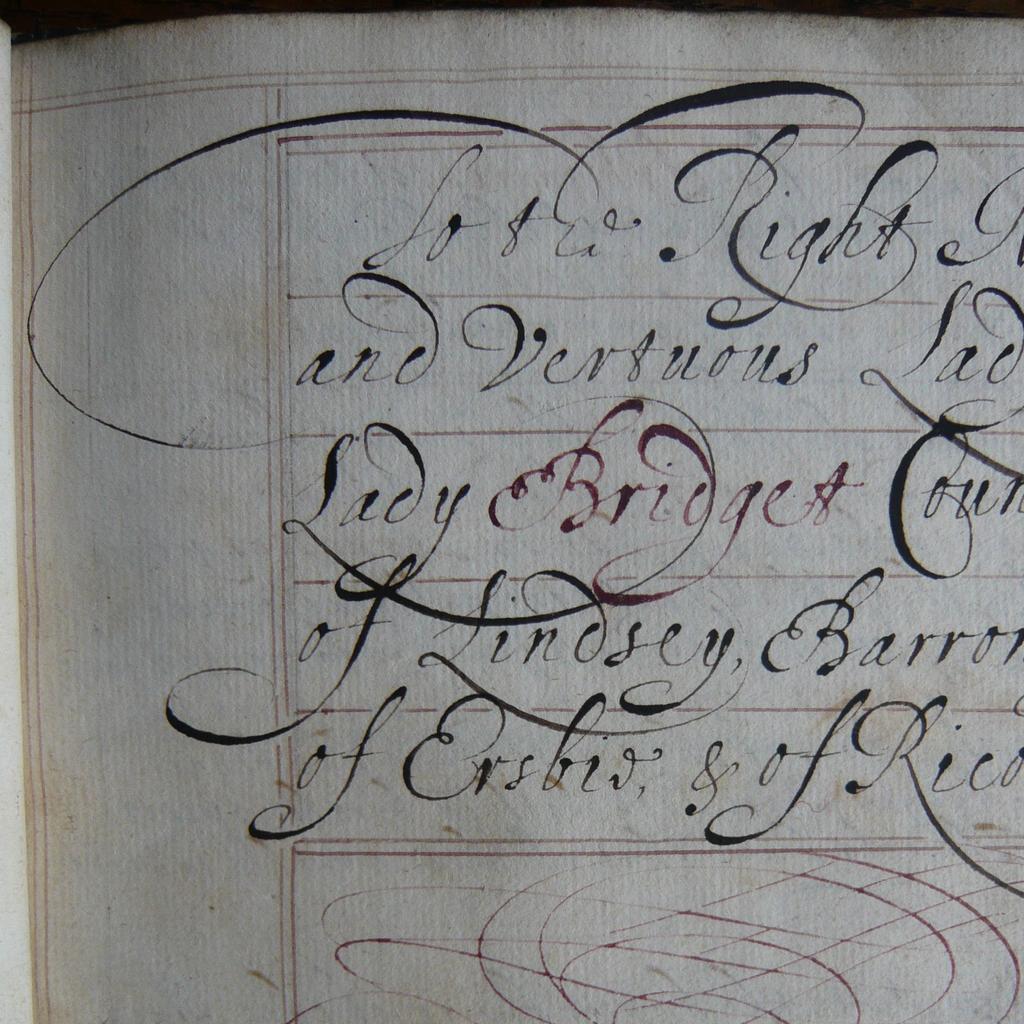 To the Right N
and Vertuous Lad
Lady Bridget Coun
of Lindsey, Barron
of Ersbie, & of Rico